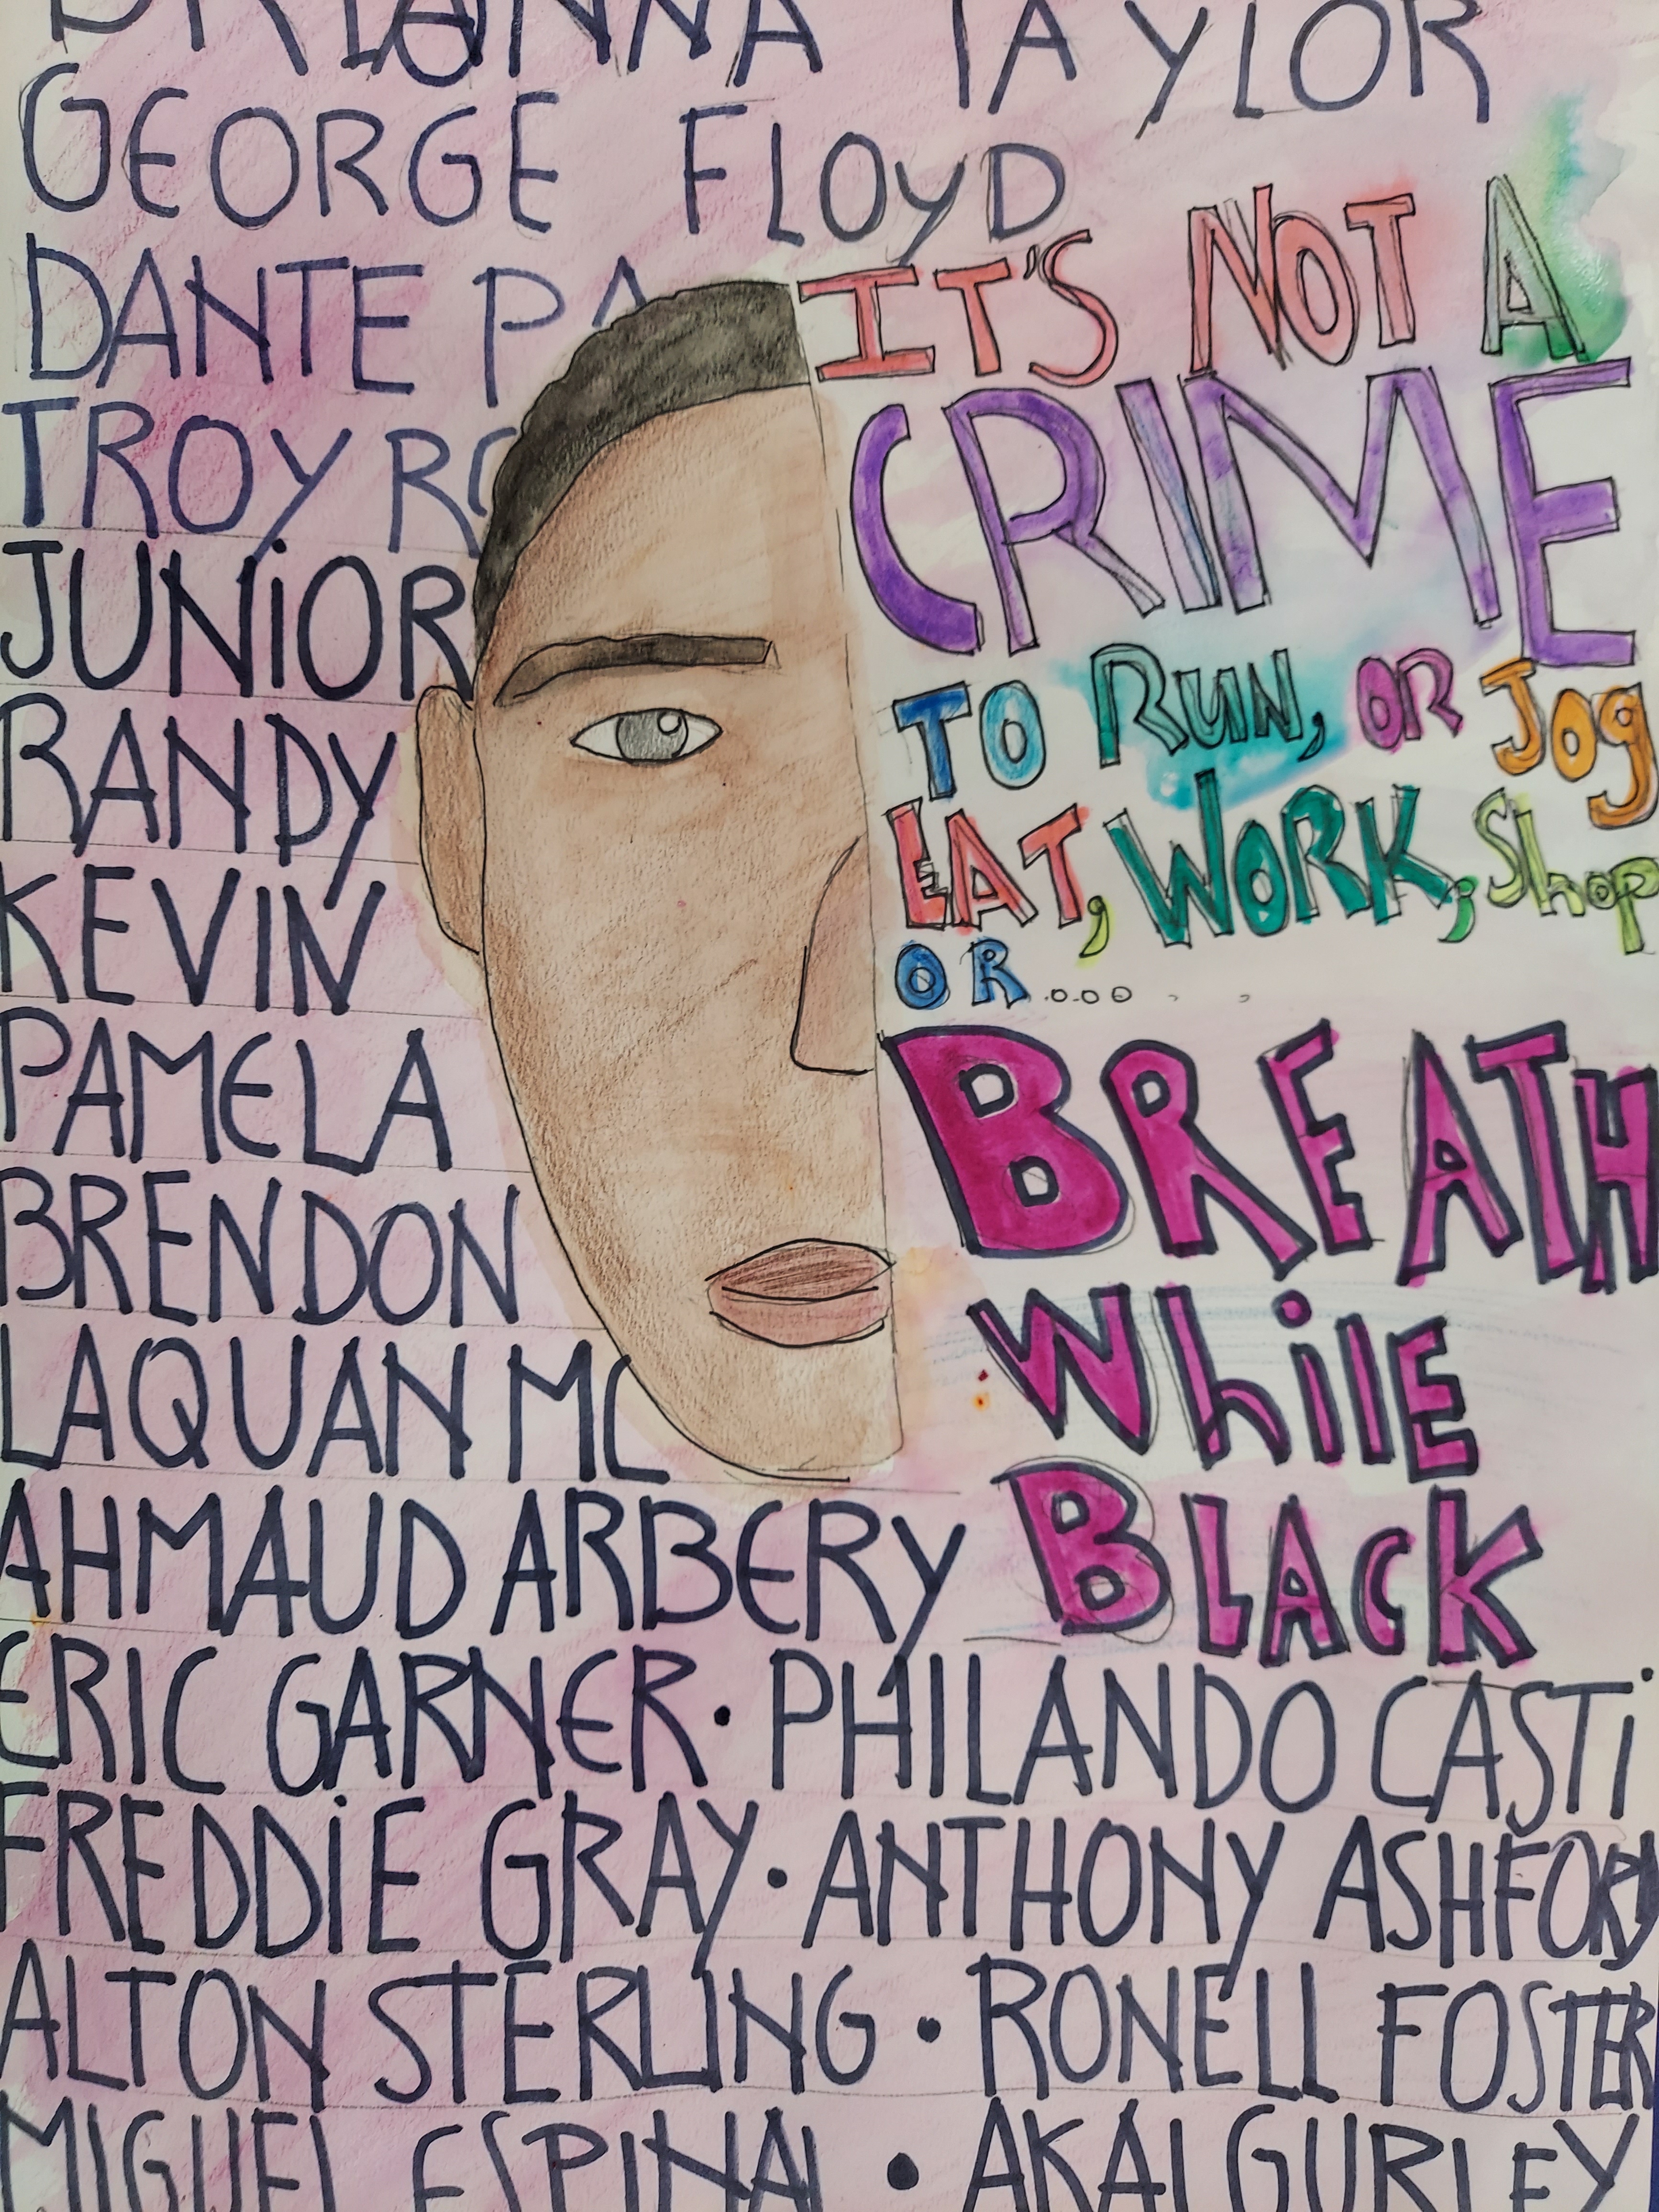 BRIANNA TAYLOR
GEORGE FLOYD
DANTE PA
TROY RO
JUNiOR
RANDY
KEVIN
PAMELA
BRENDON
LAQUAN MC
AHMAUD ARBERY
IT'S NOT A
CRIME
TO RUN, OR Jog
EAT, WORK, Shop
OR.....
BREATH
WhilE
BLACK
ERIC GARNER • PHILANDO CASTi
FREDDiE GRAY • ANTHONY ASHFORD
ALTON STERLING • RONELL FOSTER
MIGUEL ESPINAL • AKAI GURLEY